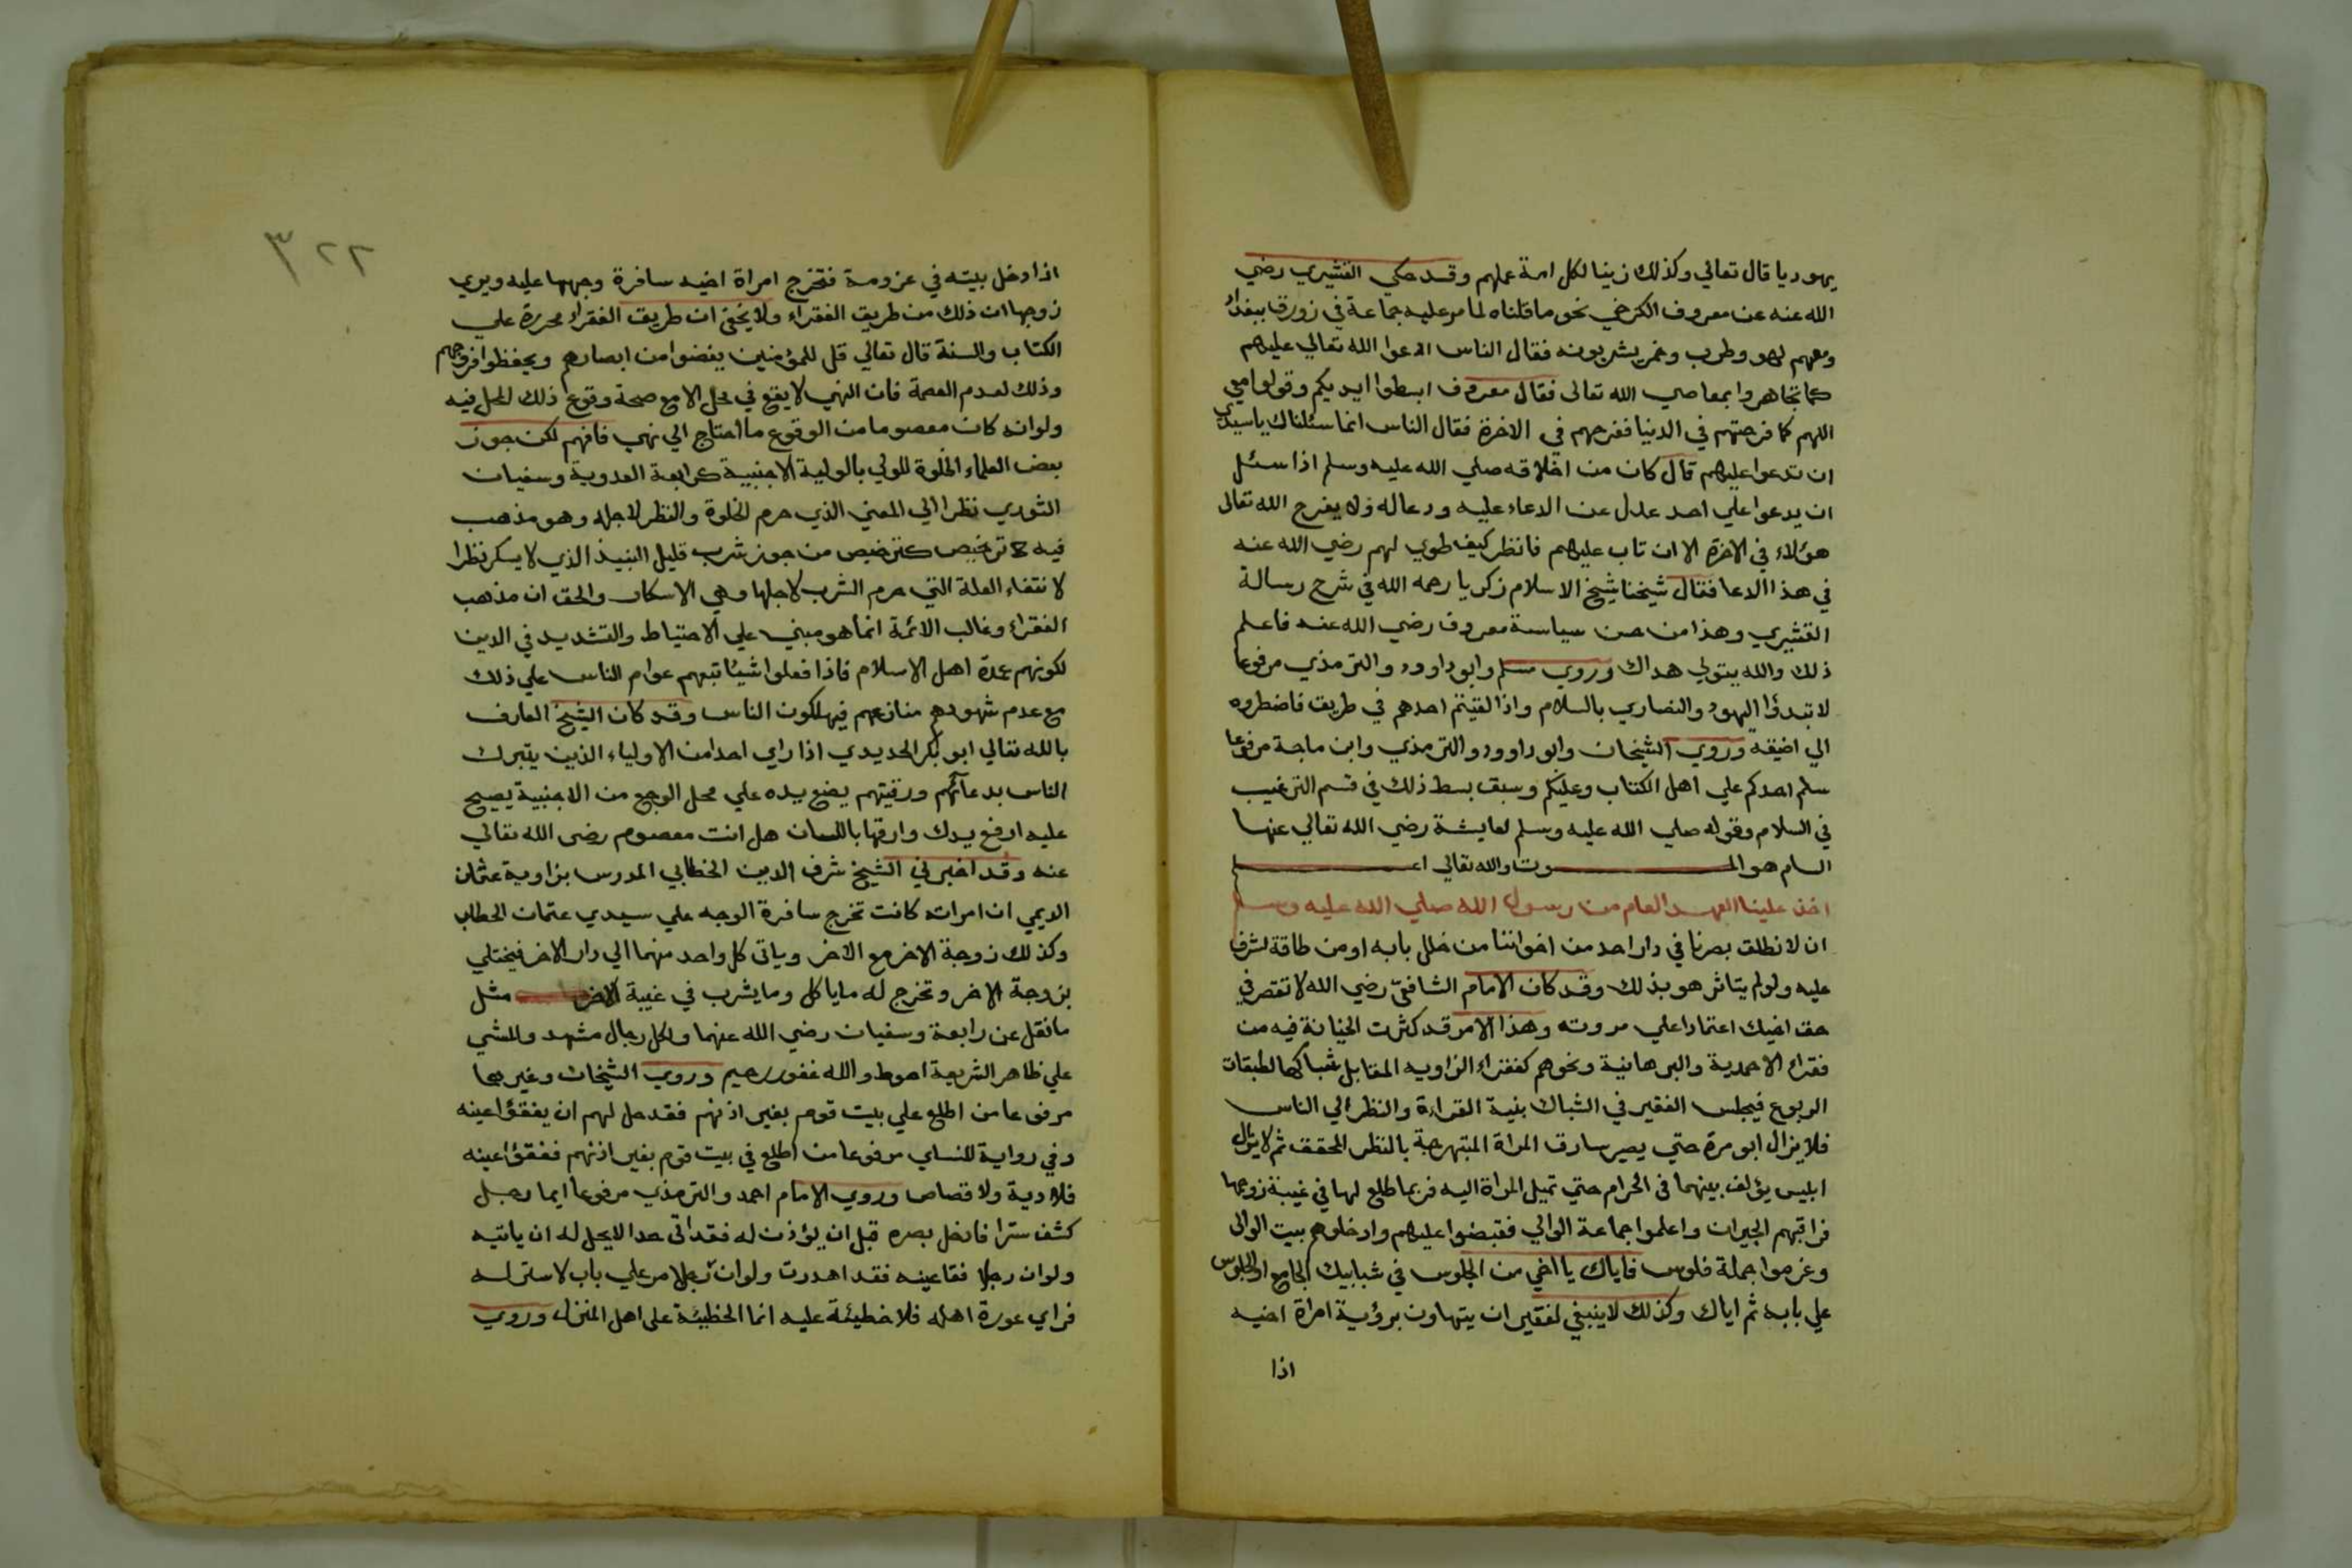 يهوديا قال تعالي وكذلك زينا لكل امة عملهم وقد حكي القشيري رضي
الله عنه عن معروف الكرخي نحو ما قلناه لما مر عليه جماعة في زورق ببغداد
ومعهم لهو وطرب وخمر يشربونه فقال الناس ادعوا الله تعالي عليهم
كما تجاهروا بمعاصي الله تعالى فقال معروف ابسطوا ايديكم وقولوا معي
اللهم كما فرحتهم في الدنيا ففرحهم في الاخرة فقال الناس انما سئلناك ياسيدي
ان تدعوا عليهم قال كان من اخلاقه صلي الله عليه وسلم اذا سئل
ان يدعوا علي احد عدل عن الدعاء عليه ودعا له ولا يفرح الله تعالى
هؤلاء في الاخرة الا ان تاب عليهم فانظر كيف طوي لهم رضي الله عنه
في هذا الدعا فقال شيخنا شيخ الاسلام زكريا رحمه الله في شرح رسالة
القشيري وهذا من حسن سياسة معروف رضي الله عنه فاعلم
ذلك والله يتولي هداك وروي مسلم وابو داوود والترمذي مرفوعا
لا تبدؤا اليهود والنصاري بالسلام واذا لقيتم احدهم في طريق فاضطروه
الي اضيقه وروي الشيخان وابو داوود والترمذي وابن ماجة مرفوعا
سلم احدكم علي اهل الكتاب وعليكم وسبق بسط ذلك في قسم الترغيب
في السلام وقوله صلي الله عليه وسلم لعايشة رضي الله تعالي عنها
السام هو الموت والله تعالي اعلم
اخذ علينا العهد العام من رسول الله صلي الله عليه وسلم
ان لا نطلق بصرنا في دار احد من اخواننا من خلل بابه او من طاقة تشرف
عليه ولو لم يتاثر هو بذلك وقد كان الامام الشافعي رضي الله لا تقصر في
حق اخيك اعتمادا علي مروته وهذا الامر قد كثرت الخيانة فيه من
فقراء الاحمدية والبرهانية ونحوهم كفقراء الزاويه المقابل شباكها لطبقات
الربوع فيجلس الفقير في الشباك بنية القراءة والنظر الي الناس
فلا يزال ابو مرة حتي يصير سارق المراة المتبهرجة بالنظر المحقق ثم لا يزال
ابليس يؤلف بينهما في الحرام حتي تميل المراة اليه فربما طلع لها في غيبة زوجها
فراقبهم الجيران واعلموا جماعة الوالي فقبضوا عليهم وادخلوهم بيت الوالى
وغرموا جملة فلوس فاياك يا اخي من الجلوس في شبابيك الجامع او الجلوس
علي بابه ثم اياك وكذلك لا ينبغي لفقير ان يتهاون برؤية امراة اخيه
اذا
٣٢٢
اذا دخل بيته في عزومة فتخرج امراة اخيه سافرة وجهها عليه ويري
زوجها ان ذلك من طريق الفقراء ولا يخفى ان طريق الفقراء محررة علي
الكتاب والسنة قال تعالي قل للمؤمنين يغضوا من ابصارهم ويحفظوا فروجهم
وذلك لعدم العصمة فان النهي لا يقع في محل الا مع صحة وقوع ذلك المحل فيه
ولو انه كان معصوما من الوقوع ما احتاج الي نهي فافهم لكن جوز
بعض العلماء الخلوة للولي بالولية الاجنبية كرابعة العدوية وسفيان
الثوري نظرا الي المعني الذي حرم الخلوة والنظر لاجله وهو مذهب
فيه ترخيص كترخيص من جوز شرب قليل النبيذ الذي لا يسكر نظرا
لانتفاء العلة التي حرم الشرب لاجلها وهي الاسكار والحق ان مذهب
الفقراء وغالب الائمة انما هو مبني علي الاحتياط والتشديد في الدين
لكونهم عمدة اهل الاسلام فاذا فعلوا شيئا تبعهم عوام الناس علي ذلك
مع عدم شهودهم منازعهم فيهلكون الناس وقد كان الشيخ العارف
بالله تعالي ابو بكر الحديدي اذا راي احدا من الاولياء الذين يتبرك
الناس بدعائهم ورقيتهم يضع يده علي محل الوجع من الاجنبية يصيح
عليه ارفع يدك وارقها باللسان هل انت معصوم رضى الله تعالي
عنه وقد اخبرني الشيخ شرف الدين الخطابي المدرس بزاوية عثمان
الديمي ان امراته كانت تخرج سافرة الوجه علي سيدي عثمان الحطاب
وكذلك زوجة الاخر مع الاخر وياتى كل واحد منهما الي دار الاخر فيختلي
بزوجة الاخر وتخرج له ما ياكل وما يشرب في غيبة الاخر مثل
ما نقل عن رابعة وسفيان رضي الله عنهما ولكل رجال مشهد والمشي
علي ظاهر الشريعة احوط والله غفور رحيم وروي الشيخان وغيرهما
مرفوعا من اطلع علي بيت قوم بغير اذنهم فقد حل لهم ان يفقؤا عينه
وفي رواية للنساي مرفوعا من اطلع في بيت قوم بغير اذنهم ففقؤا عينه
فلا دية ولا قصاص وروي الامام احمد والترمذي مرفوعا ايما رجل
كشف سترا فادخل بصره قبل ان يؤذن له فقد اتى حدا لا يحل له ان ياتيه
ولو ان رجلا فقا عينه فقد اهدرت ولو ان رجلا مر علي باب لا ستر له
فراي عورة اهله فلا خطيئة عليه انما الخطيئة على اهل المنزل وروي